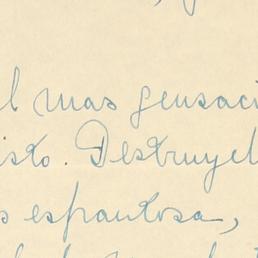 l mas gensaci
isto. Destruyel
s espantosa,